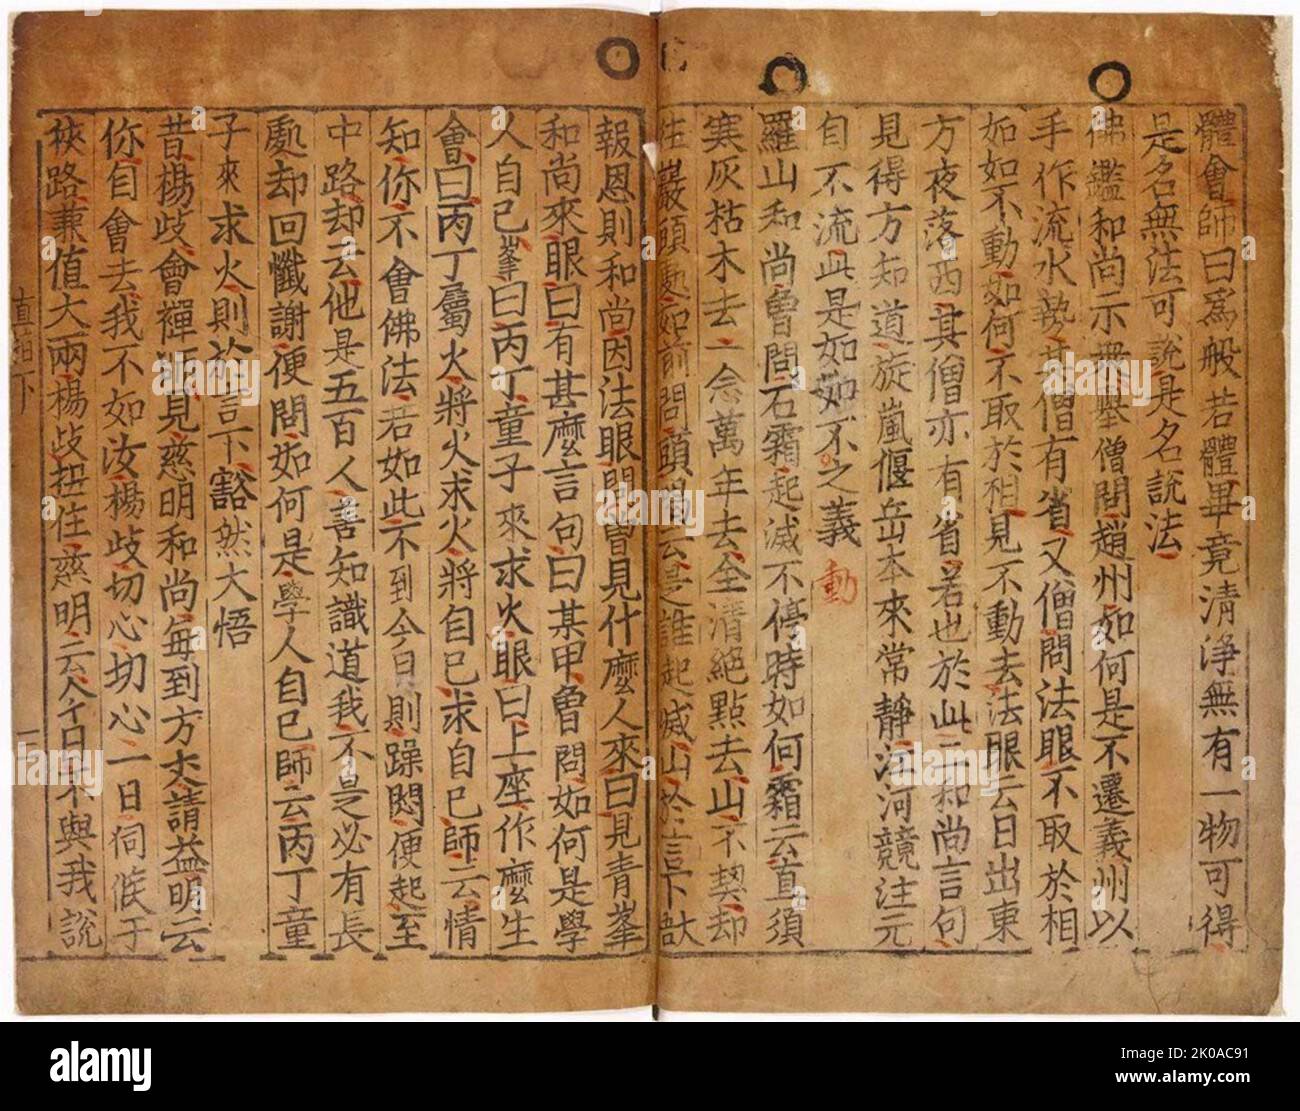 體會師曰爲般若體畢竟清淨無有一物可得
是名無法可說是名說法
佛鑑和尚示衆擧僧問趙州如何是不遷義州以
手作流水勢其僧有省又僧問法眼不取於相
如如不動如何不取於相見不動去法眼云日出東
方夜落西其僧亦有省若也於此二和尚言句
見得方知道旋嵐偃岳本來常靜江河競注元
自不流此是如如不之義 動
羅山和尚曾問石霜起滅不停時如何霜云直須
寒灰枯木去一念萬年去全清絕點去山不契却
往巖頭處如前問頭喝云是誰起滅山於言下猷
報恩則和尚因法眼問曾見什麽人來曰見青峯
和尚來眼曰有甚麽言句曰某甲曾問如何是學
人自己峯曰丙丁童子來求火眼曰上座作麽生
會曰丙丁屬火將火求火將自己求自己師云情
知你不會佛法若如此不到今日則躁悶便起至
中路却云他是五百人善知識道我不是必有長
處却回懺謝便問如何是學人自己師云丙丁童
子來求火則於言下豁然大悟
昔楊歧會禪師見慈明和尚每到方丈請益明云
你自會去我不如汝楊歧切心切心一日伺候于
狹路兼值大雨楊歧扭住慈明云今日不與我說
直指下
alamy
Image ID: 2K0AC91
www.alamy.com